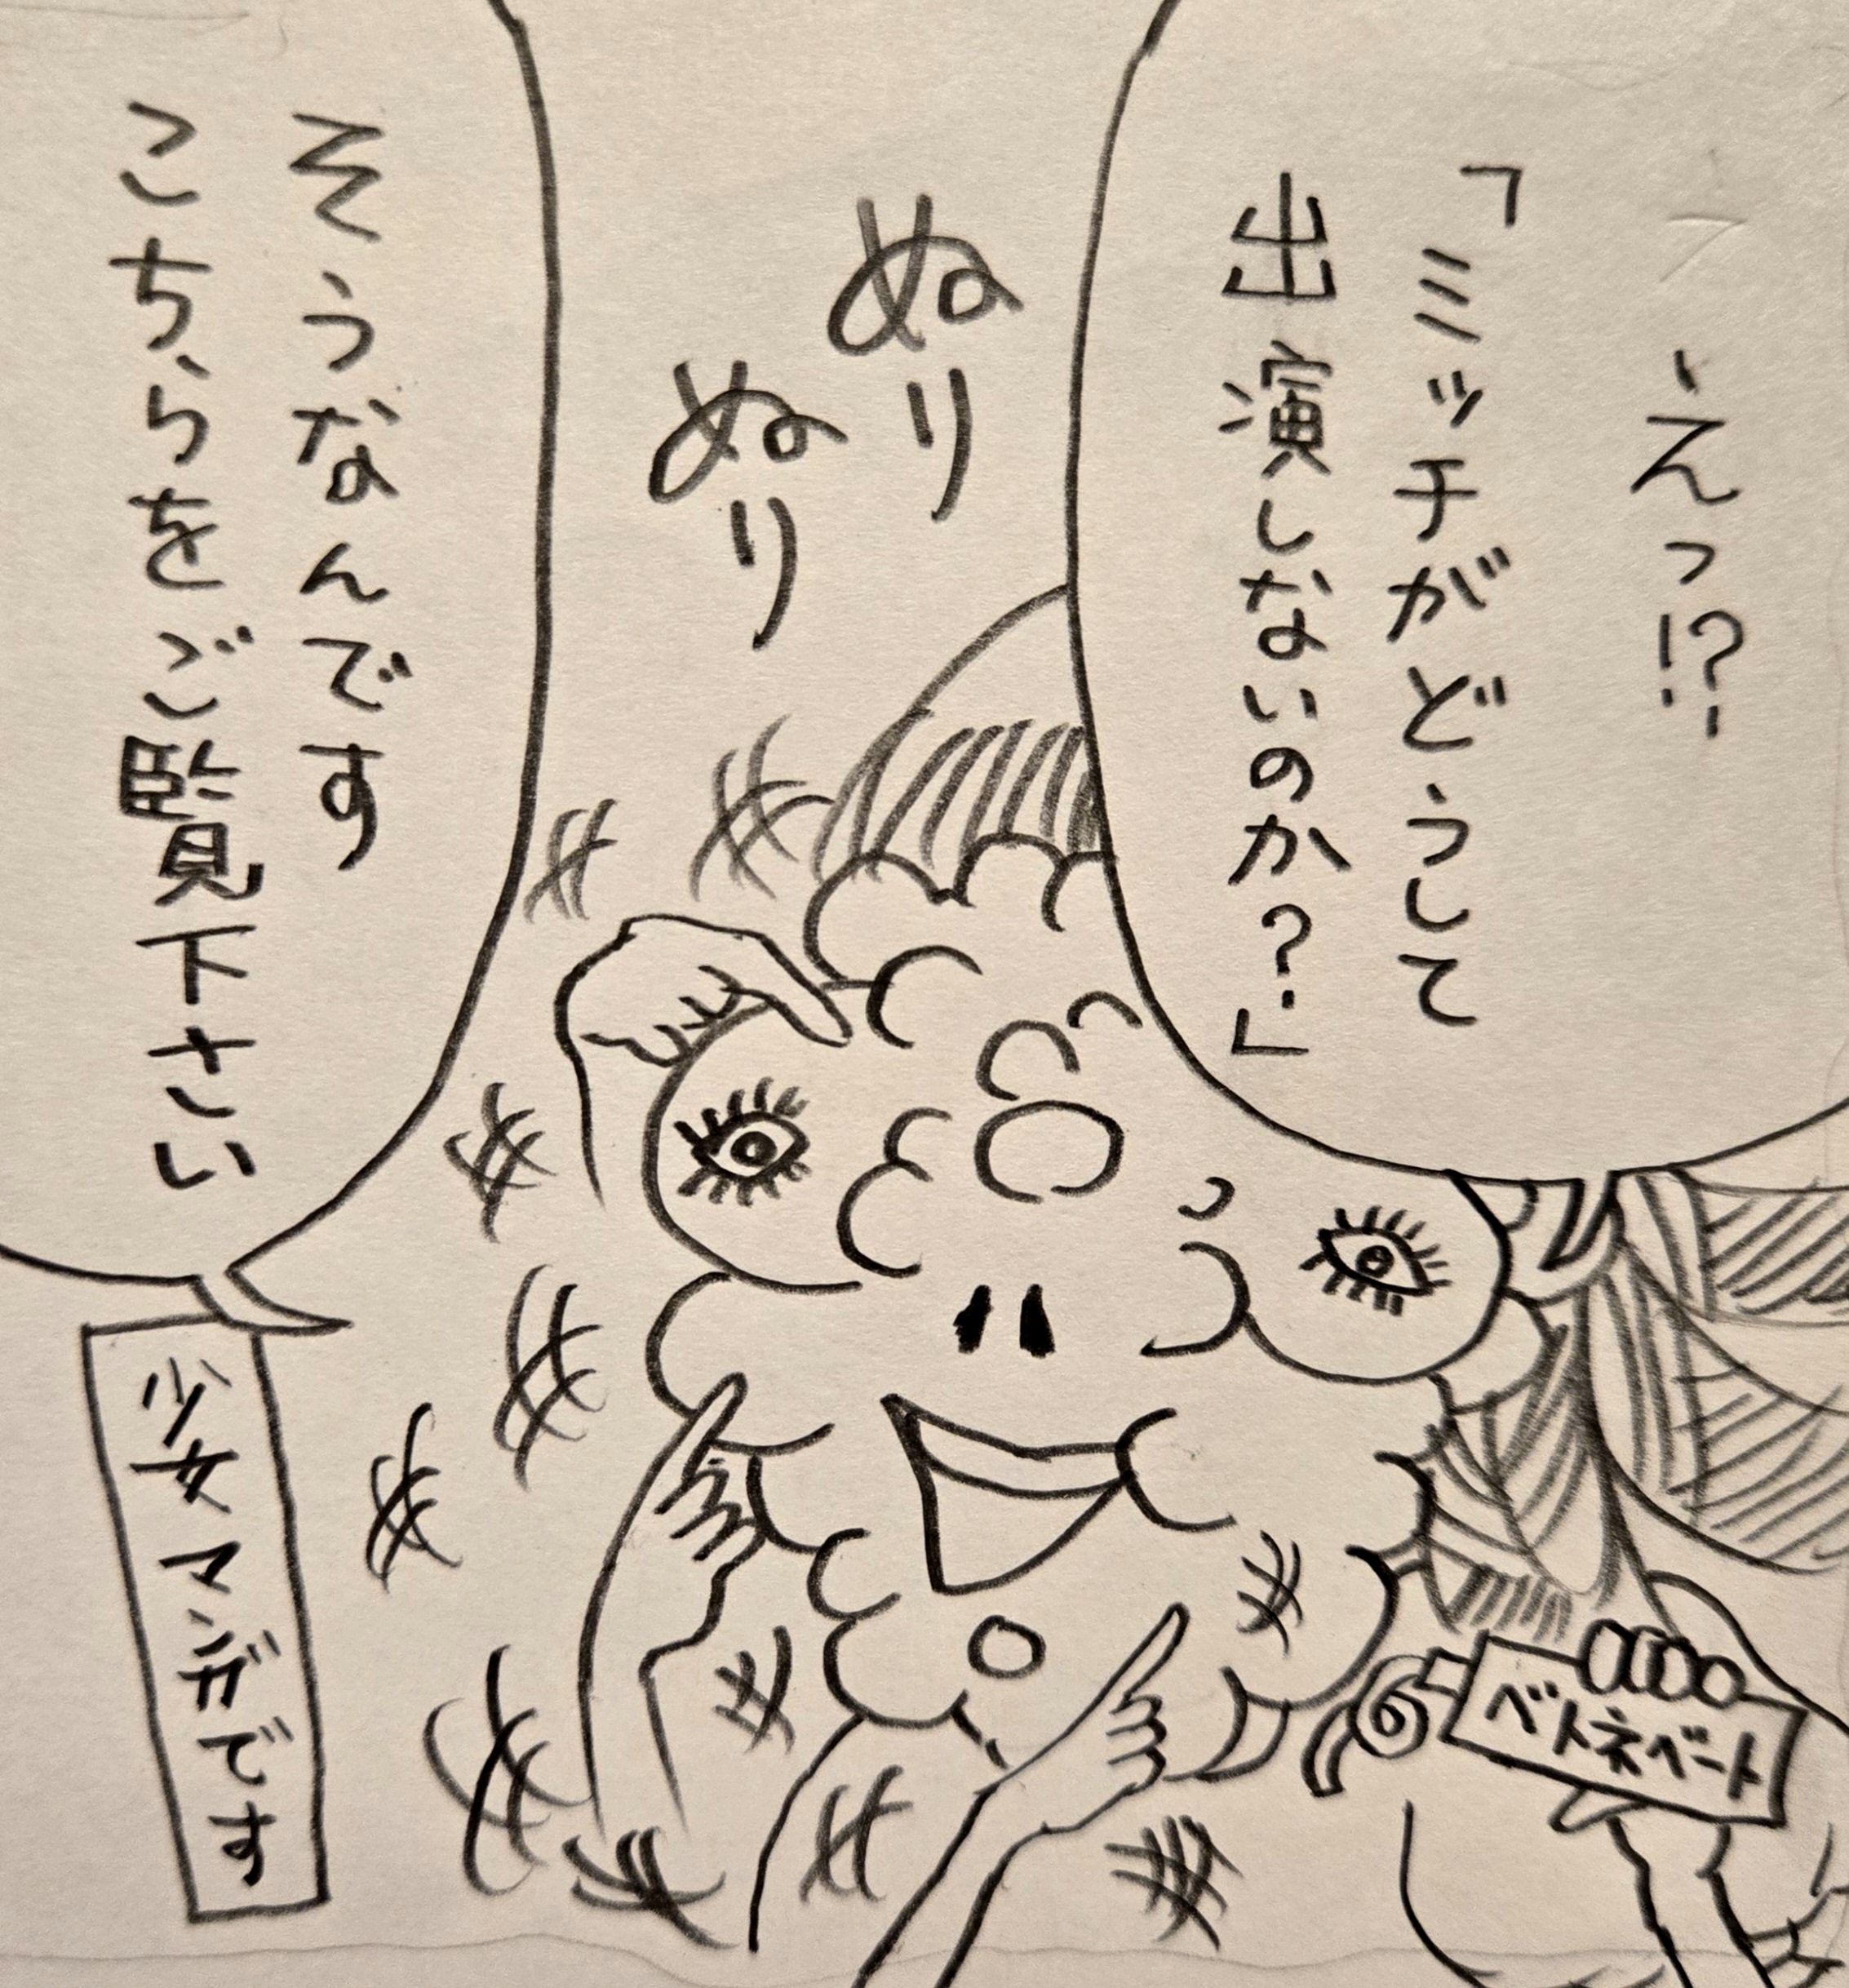 えっ!?
「ミッチがどうして
出演しないのか?」
ぬり
ぬり
ベトネベート
そうなんです
こちらをご覧下さい
少女マンガです